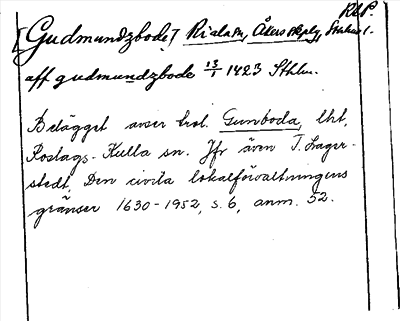 RLP.
[Gudmundzbode, Riala sn, Åkers skplg, Sthlms l.
aff gudmundzbode 13/1 1423 Sthlm.
Belägget avser trol. Gumboda, lht,
Roslags-Kulla sn. Jfr även T. Lager-
stedt, Den civila lokalförvaltningens
gränser 1630-1952, s. 6, anm. 52.